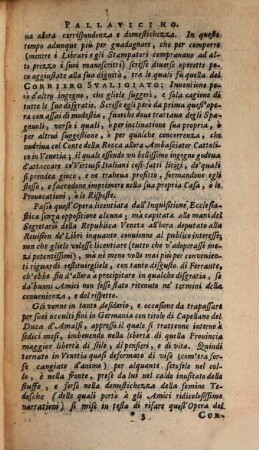 PALLAVICINO.
na altra corrispondenza e domestichezza. In questo
tempo adunque più per guadagnare, che per comporre
(mentre i Librari e gli Stampatori compravano ad al-
to prezzo i suoi manuscritti) scrisse diverse operette po-
co aggiustate alla sua dignità, tra le quali fu quella del
CORRIERO SVALIGIATO: Invenzione po-
però d'altro ingegno, che gliele suggerì, e sola cagione di
tutte le sue disgratie. Scrisse egli però da prima quest'ope-
ra con assai di modestia, fuorche dove trattava degli Spa-
gnuoli, verso i quali, ò per inclinatione sua propria, ò
per altrui suggestione, ò per qualche concorrenza, che
nudriva col Conte della Rocca allora Ambasciator Cattoli-
co in Venetia, il quale essendo un bellissimo ingegno godeva
d'attaccare co' Virtuosi Italiani così fatti litigi, de' quali
si prendea gioco, e ne traheva profitto, formandone egli
stesso, e facendone imprimere nella sua propria Casa, ò le
Provocationi, ò le Risposte.
Passò quest'Opera licentiata dall'Inquisitione, Ecclesia-
stica senza oppositione alcuna; mà capitata alle mani del
Segretario della Republica Veneta allhora deputato alla
Revisione de' Libri inquanto conviene al publico interesse,
non che gliele volesse licentiare (tutto che v'adoperasse me-
zi potentissimi), mà nè meno volle mai più per convenien-
ti riguardi restituirgliela, con tanto disgusto di Ferrante,
ch'ebbe fin d'allhora à precipitare in qualche disgratia, se
da' buoni Amici non fusse stato ritenuto ne' termini della
convenienza, e del rispetto.
Gli venne in tanto desiderio, e occasione da trapassare
per suoi occulti fini in Germania con titolo di Capellano del
Duca d'Amalfi, appresso il quale si trattenne intorno à
sedici mesi, imbevendo nella libertà di quella Provincia
maggior libertà di stile, di pensieri, e di vita. Quindi
tornato in Venetia quasi deformato di viso (com'era for-
se cangiato d'animo) per alquante fistole nel col-
lo, e nella fronte, prese da lui nel caldo inusitato delle
stuffe, e forse nella domestichezza della femine Te-
desche (delle quali portò à gli Amici ridicolosissime
narrationi) si mise in testa di rifare quest'Opera del
* 3
Cor-